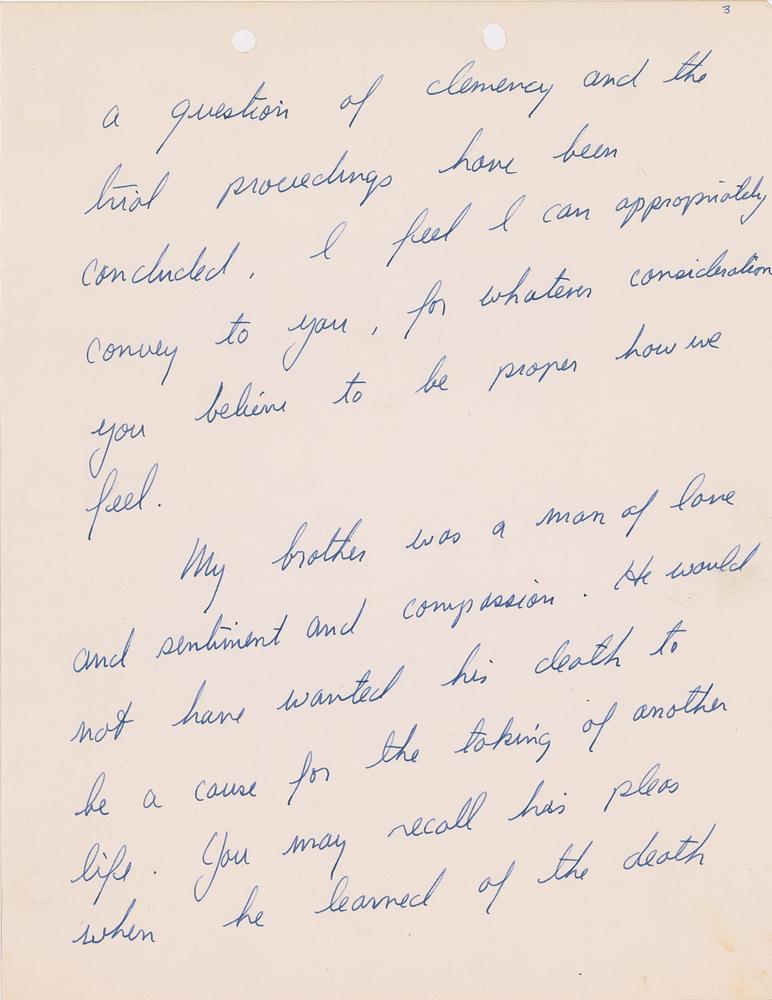 3
a question of clemency and the
trial proceedings have been
concluded, I feel I can appropriately
convey to you, for whatever consideration
you believe to be proper how we
feel.
My brother was a man of love
and sentiment and compassion. He would
not have wanted his death to
be a cause for the taking of another
life. You may recall his pleas
when he learned of the death